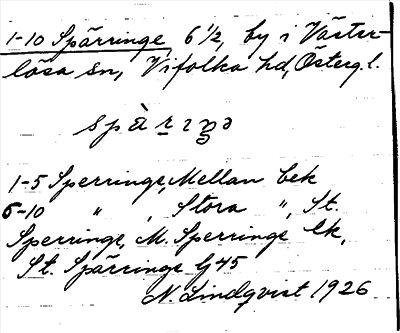 1-10 Spärringe 6 1/2, by i Väster-
lösa sn, Vifolka hd, Österg. l.
spàrıŋə
1-5 Sperringe, Mellan bek
6-10 " , Stora ", St.
Sperringe, M. Sperringe Ek,
St. Spärringe G 45
N. Lindqvist 1926